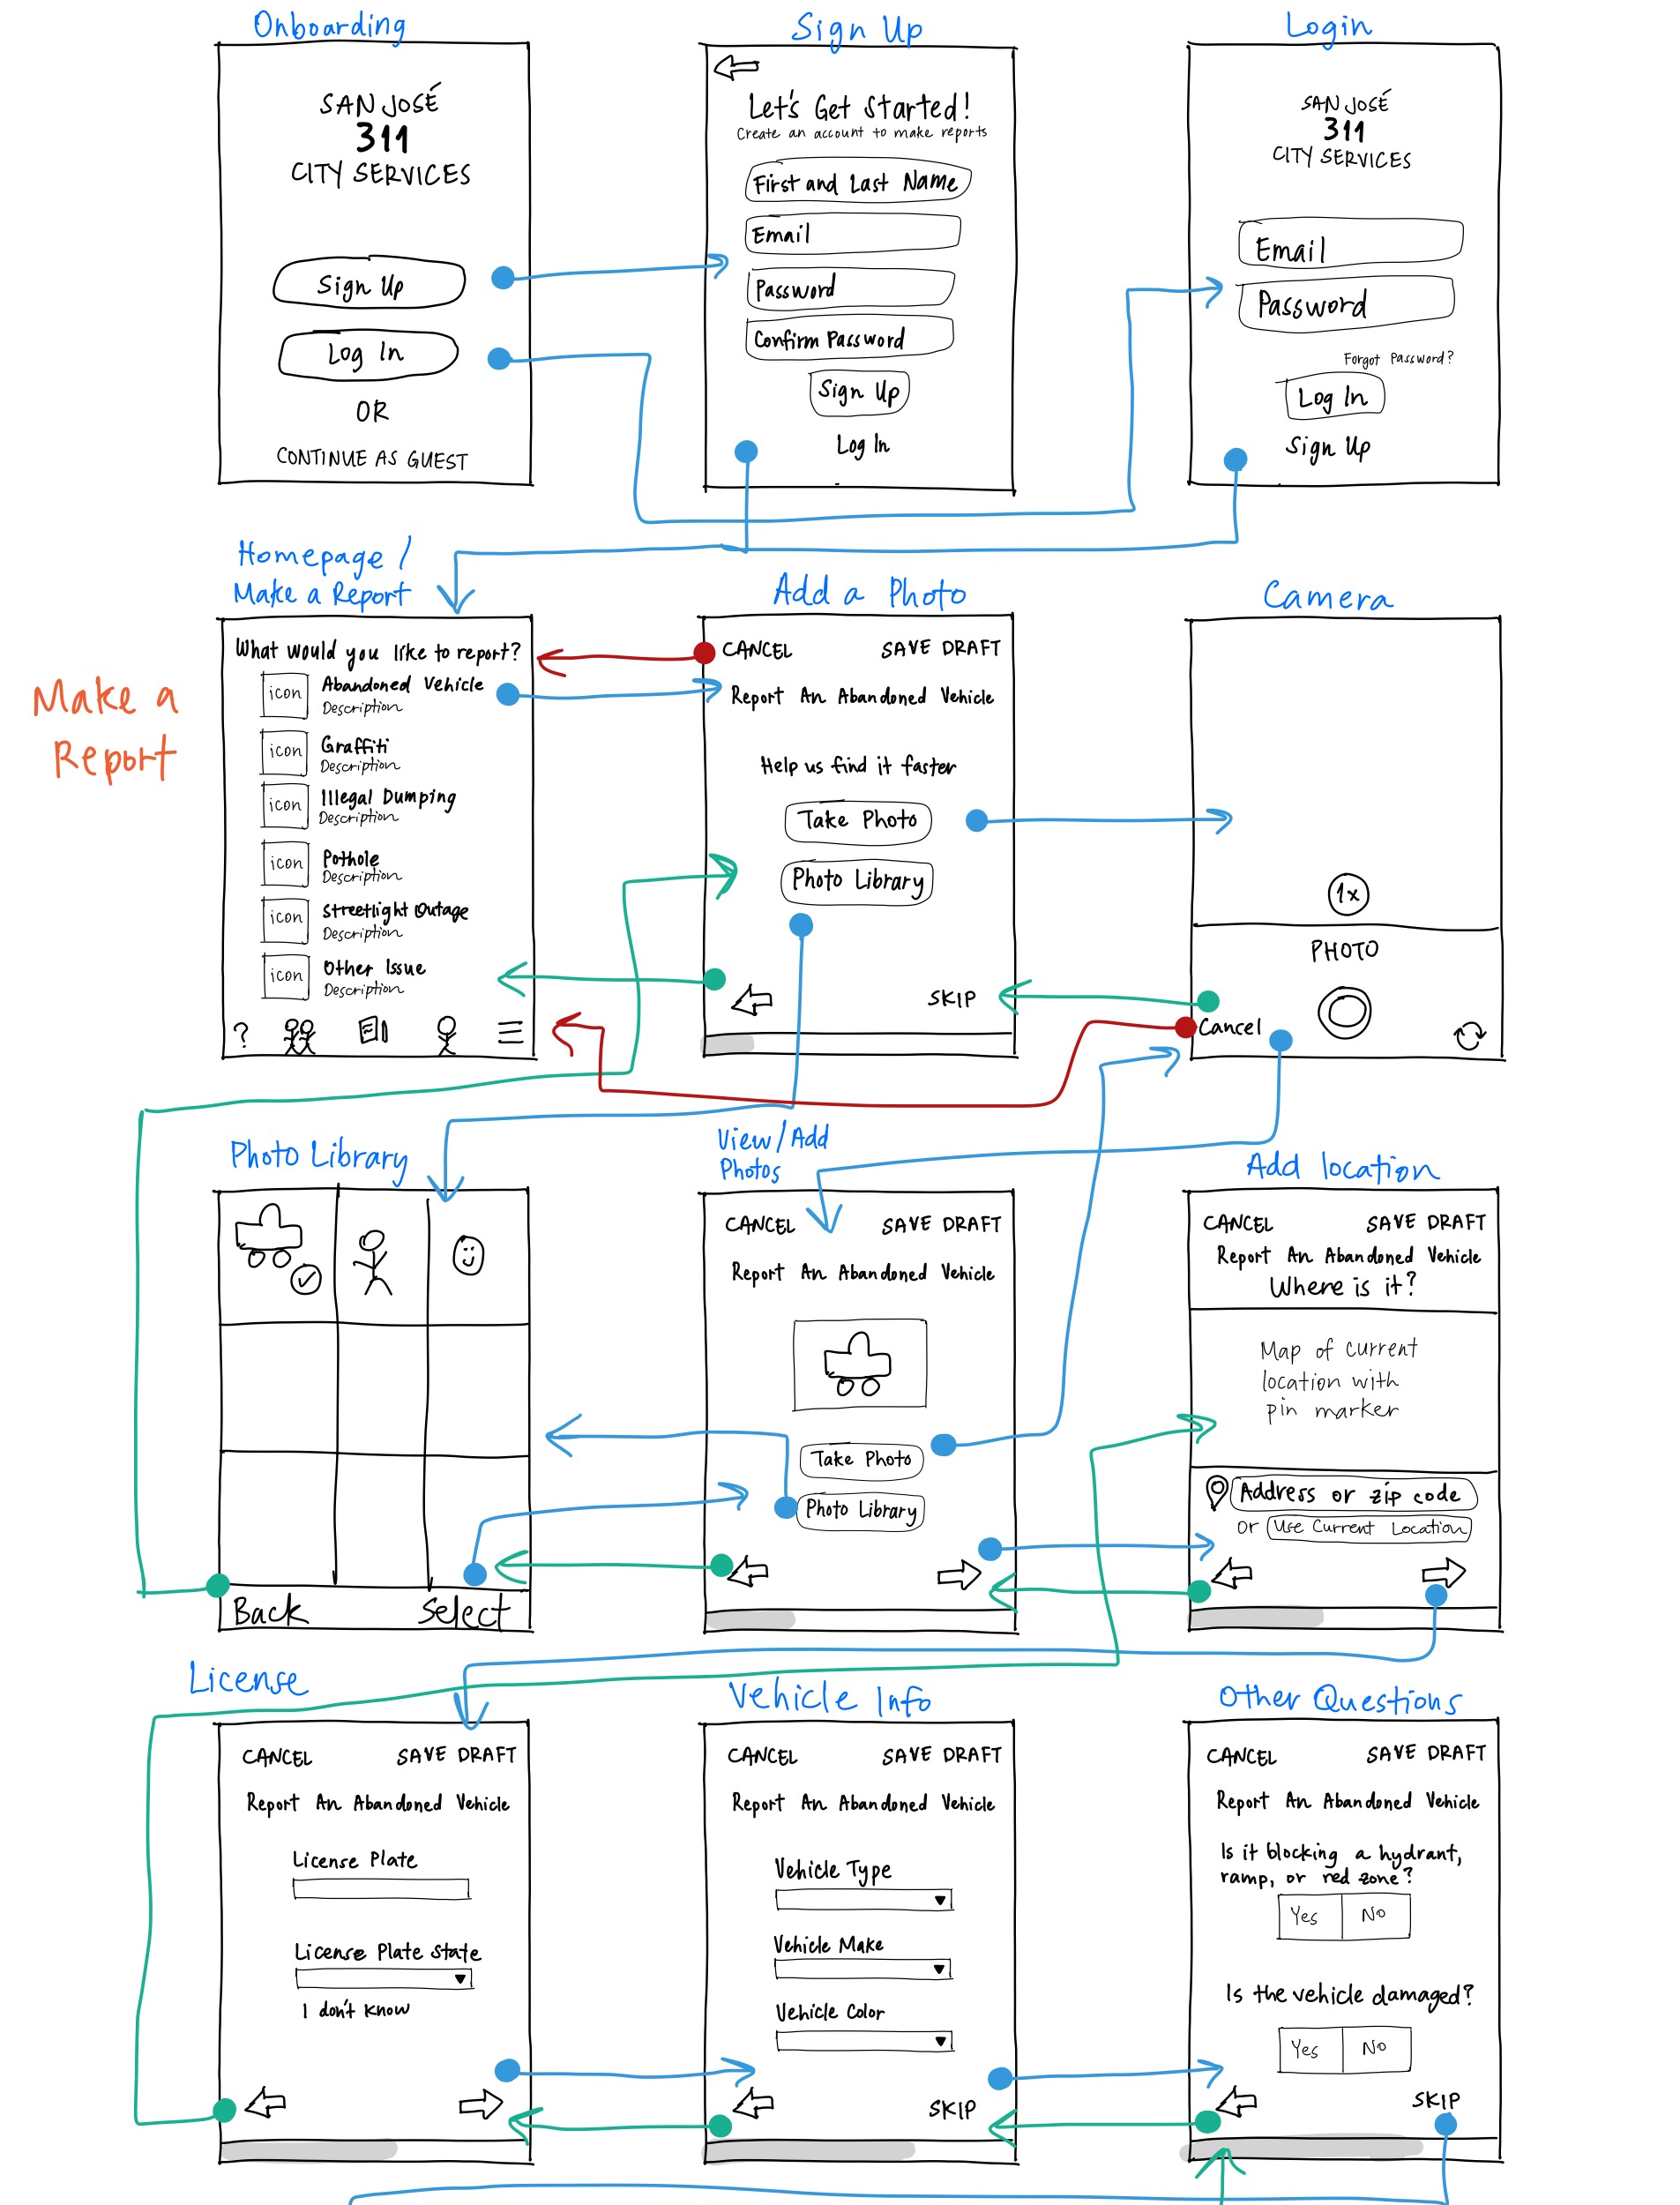 Onboarding
SAN JOSÉ
311
CITY SERVICES
Sign Up
Log In
OR
CONTINUE AS GUEST
Sign Up
Let's Get Started!
Create an account to make reports
First and Last Name
Email
Password
Confirm Password
Sign Up
Log In
Login
SAN JOSÉ
311
CITY SERVICES
Email
Password
Forgot Password?
Log In
Sign Up
Make a
Report
Homepage /
Make a Report
What would you like to report?
icon
Abandoned Vehicle
Description
icon
Graffiti
Description
icon
Illegal Dumping
Description
icon
Pothole
Description
icon
Streetlight Outage
Description
icon
Other Issue
Description
?
Add a Photo
CANCEL SAVE DRAFT
Report An Abandoned Vehicle
Help us find it faster
Take Photo
Photo Library
SKIP
Camera
1x
PHOTO
Cancel
Photo Library
Back Select
View/Add
Photos
CANCEL SAVE DRAFT
Report An Abandoned Vehicle
Take Photo
Photo Library
Add location
CANCEL SAVE DRAFT
Report An Abandoned Vehicle
Where is it?
Map of current
location with
pin marker
Address or zip code
or Use Current Location
License
CANCEL SAVE DRAFT
Report An Abandoned Vehicle
License Plate
License Plate State
I don't know
Vehicle Info
CANCEL SAVE DRAFT
Report An Abandoned Vehicle
Vehicle Type
Vehicle Make
Vehicle Color
SKIP
Other Questions
CANCEL SAVE DRAFT
Report An Abandoned Vehicle
Is it blocking a hydrant,
ramp, or red zone?
Yes No
Is the vehicle damaged?
Yes No
SKIP